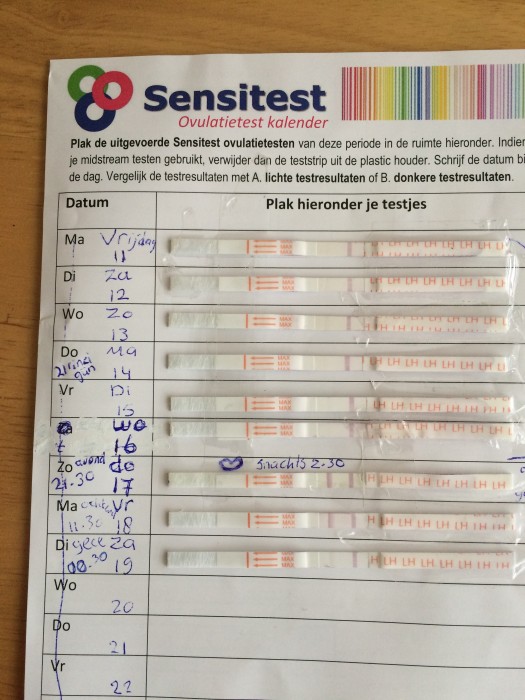 Sensitest
Ovulatietest kalender
Plak de uitgevoerde Sensitest ovulatietesten van deze periode in de ruimte hieronder. Indien
je midstream testen gebruikt, verwijder dan de teststrip uit de plastic houder. Schrijf de datum bi
de dag. Vergelijk de testresultaten met A. lichte testresultaten of B. donkere testresultaten.
Datum Plak hieronder je testjes
Ma Vrijdag
11
MAX LH LH LH LH LH LH
Di Za
12
MAX LH LH LH LH LH LH
Wo Zo
13
MAX LH LH LH LH LH
Do Ma
14
MAX LH LH LH LH LH
Vr Di
15
MAX H LH LH LH LH LH LH
wo
16
MAX
Zo avond do snachts 2.30
21.30 17
MAX H LH LH LH LH LH LH
Ma Vr
11.30 18
MAX H LH LH LH LH
Di Za
00.30 19
MAX H LH LH LH LH LH LH
Wo
20
Do
21
Vr
22